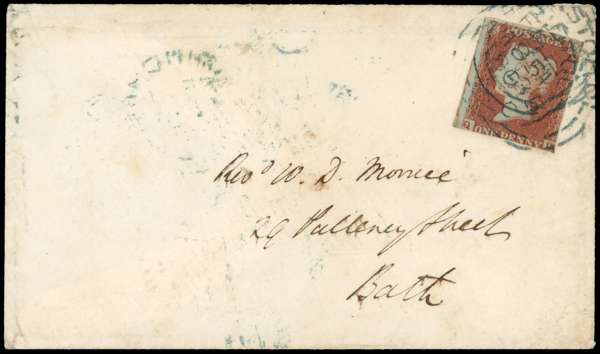 POSTAGE
ONE PENNY
Revd W. D. Morrice
29 Pulteney Street
Bath